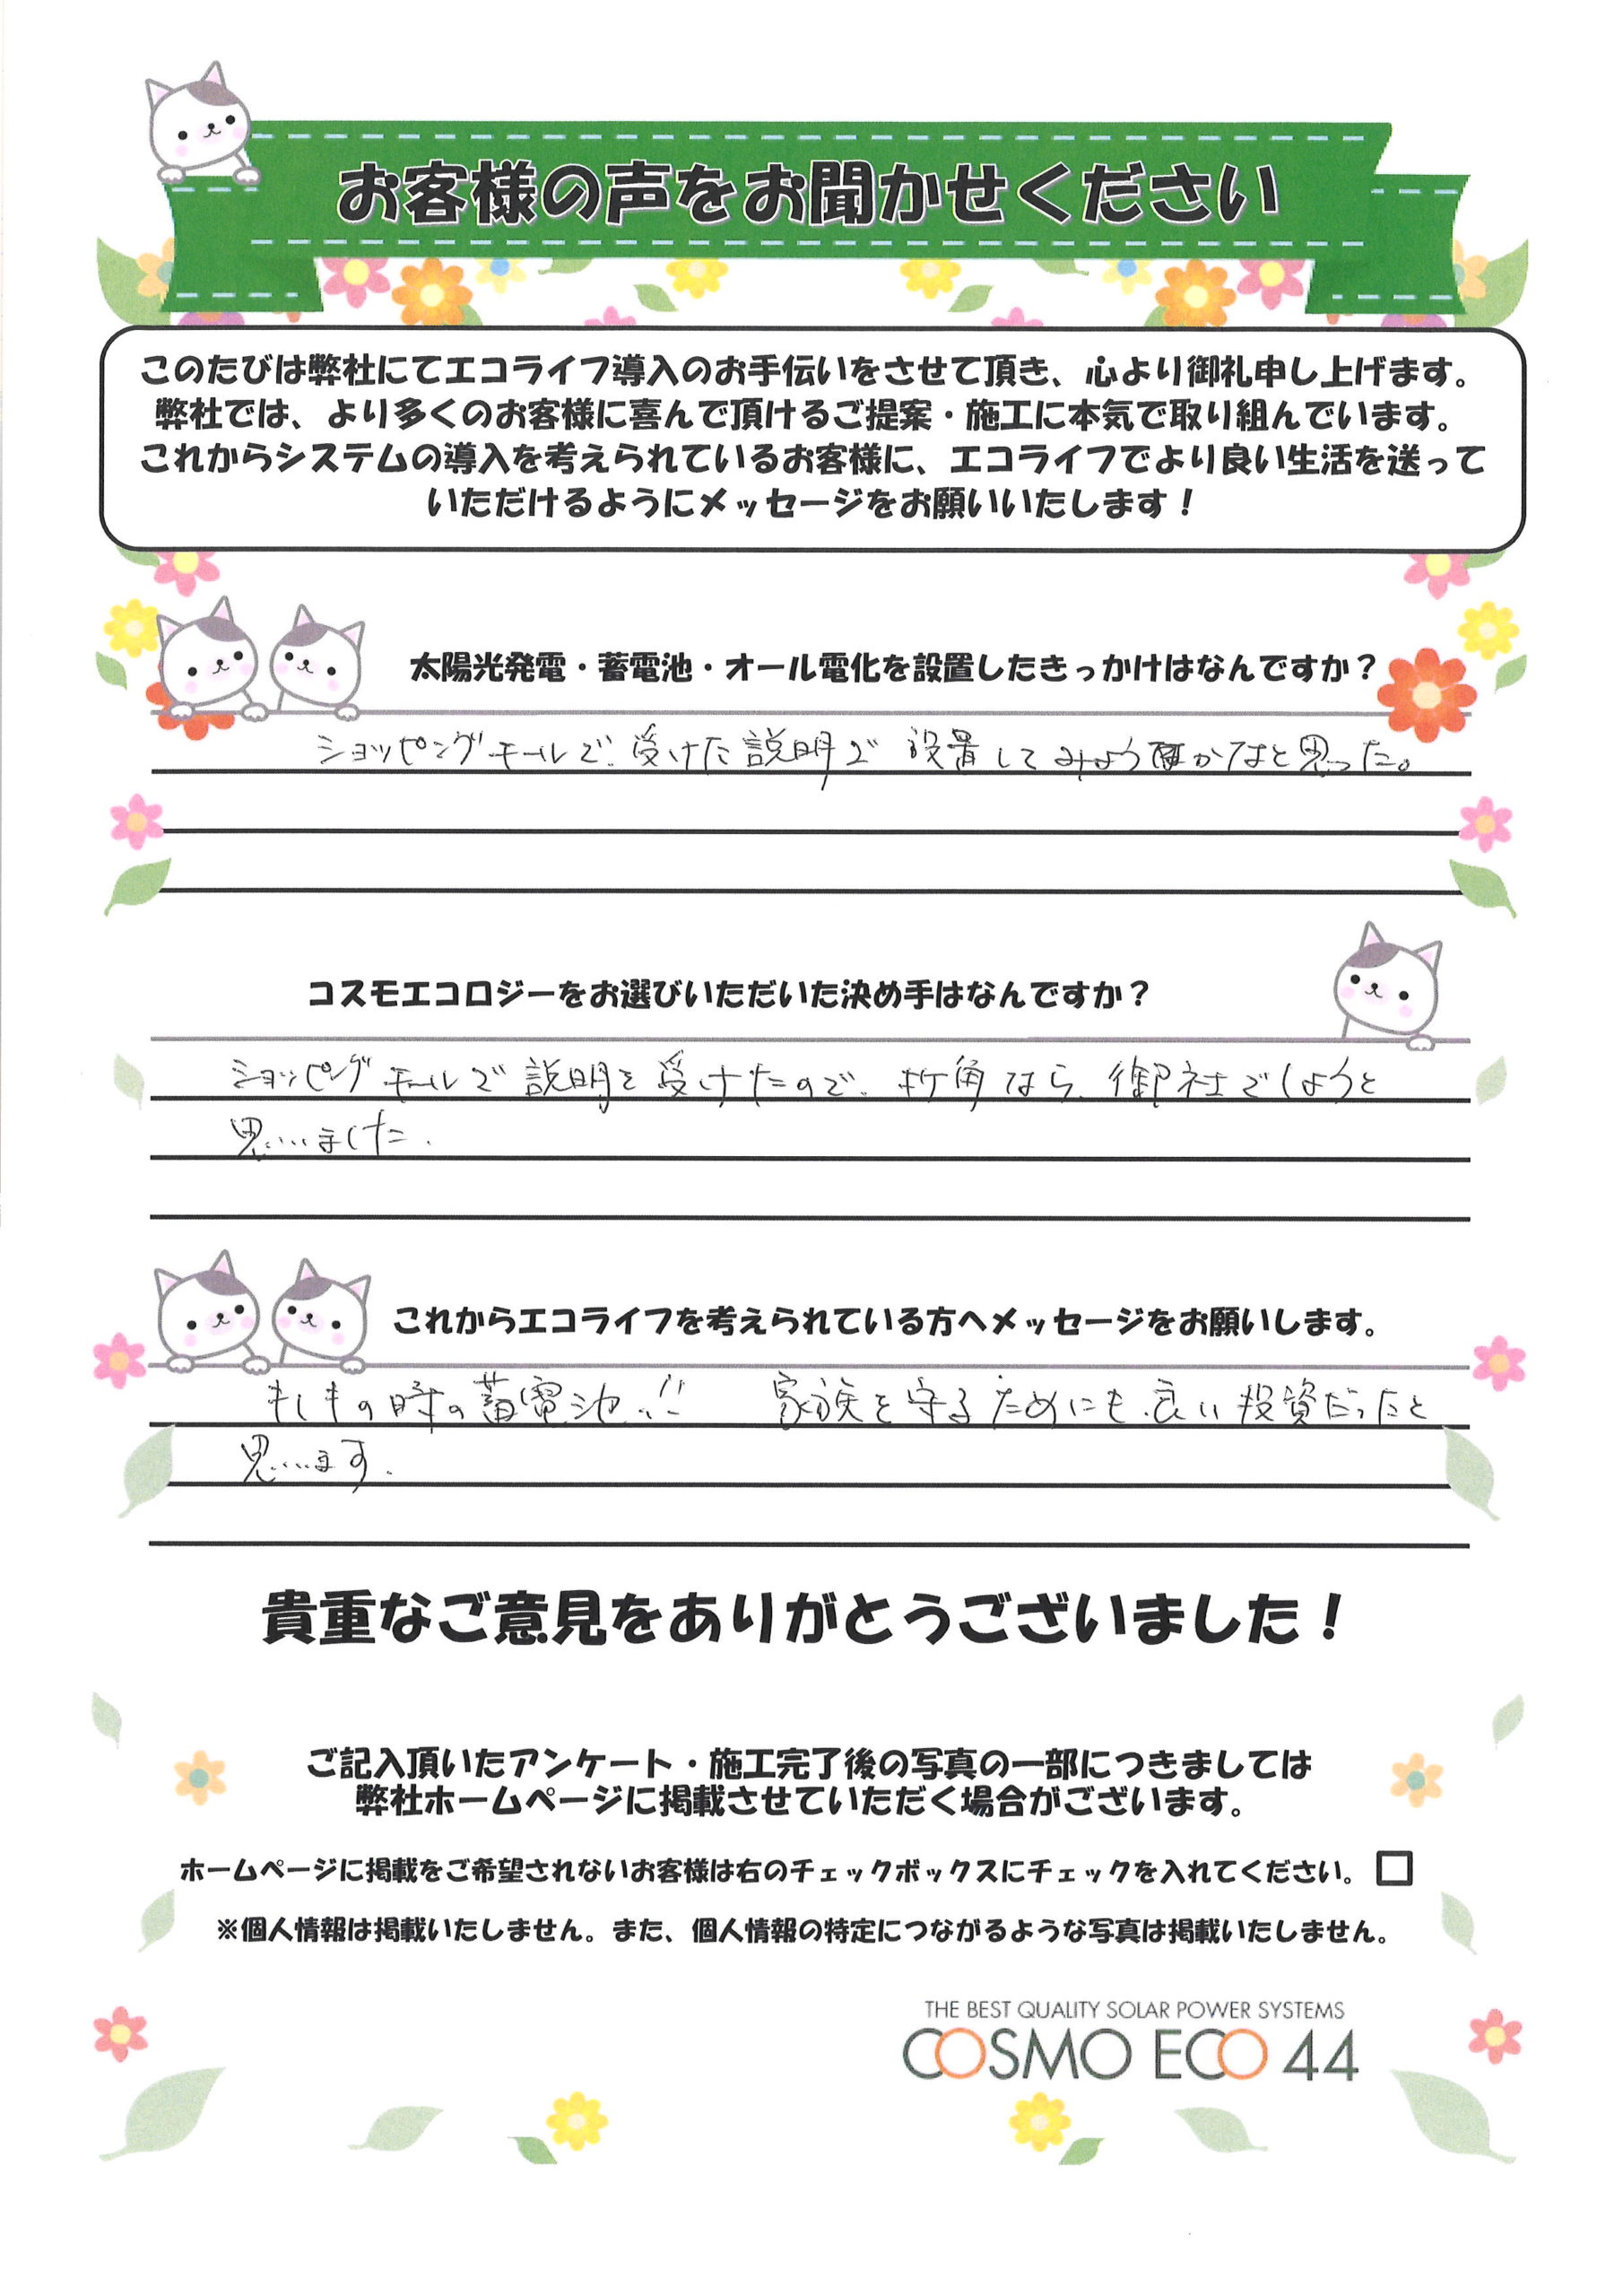 お客様の声をお聞かせください
このたびは弊社にてエコライフ導入のお手伝いをさせて頂き、心より御礼申し上げます。
弊社では、より多くのお客様に喜んで頂けるご提案・施工に本気で取り組んでいます。
これからシステムの導入を考えられているお客様に、エコライフでより良い生活を送って
いただけるようにメッセージをお願いいたします！
太陽光発電・蓄電池・オール電化を設置したきっかけはなんですか？
ショッピングモールで受けた説明で 設置してみようかなと思った。
コスモエコロジーをお選びいただいた決め手はなんですか？
ショッピングモールで説明を受けたので、折角なら、御社でしようと
思いました.
これからエコライフを考えられている方へメッセージをお願いします。
もしもの時の蓄電池!! 家族を守るためにも、良い投資だったと
思います.
貴重なご意見をありがとうございました！
ご記入頂いたアンケート・施工完了後の写真の一部につきましては
弊社ホームページに掲載させていただく場合がございます。
ホームページに掲載をご希望されないお客様は右のチェックボックスにチェックを入れてください。
※個人情報は掲載いたしません。また、個人情報の特定につながるような写真は掲載いたしません。
THE BEST QUALITY SOLAR POWER SYSTEMS
COSMO ECO 44